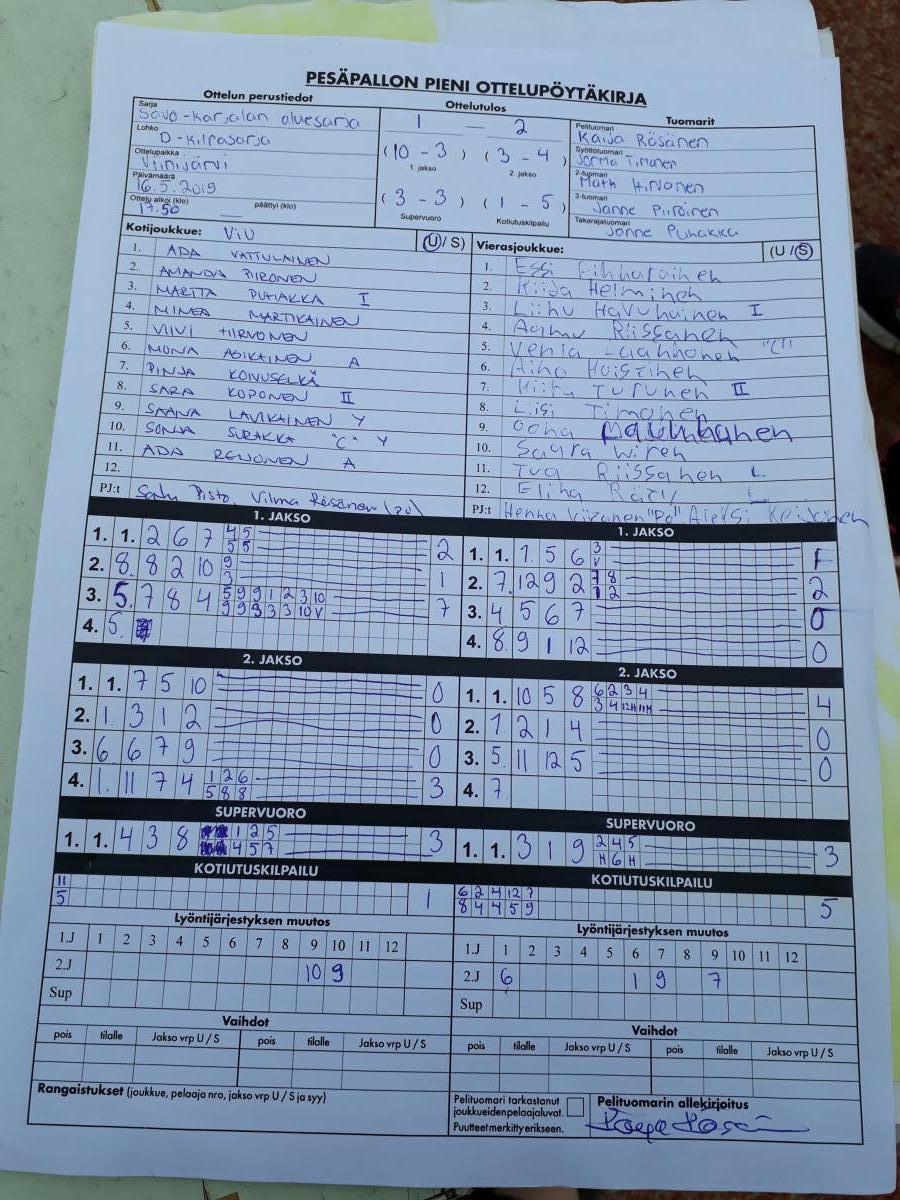 PESÄPALLON PIENI OTTELUPÖYTÄKIRJA
Ottelun perustiedot
Ottelutulos
Tuomarit
Sarja
Savo-Karjalan aluesarja
Lohko
D-kilpasarja
Ottelupaikka
Viinijärvi
Päivämäärä
16.5.2019
Ottelu alkoi (klo) päättyi (klo)
17.50
1 — 2
(10 - 3) (3 - 4)
1. jakso 2. jakso
(3 - 3) (1 - 5)
Supervuoro Kotiutuskilpailu
Pelituomari
Kaija Räsänen
Syöttötuomari
Jorma Timonen
2-tuomari
Matti Hirvonen
3-tuomari
Janne Piiroinen
Takarajatuomari
Janne Puhakka
Kotijoukkue: ViU (U/S)
1. ADA VATTULAINEN
2. AMANDA PIIRONEN
3. MARTTA PUHAKKA I
4. MINEA MARTIKAINEN
5. VIIVI HIRVONEN
6. MONA ASIKAINEN A
7. PINJA KONUSELKÄ
8. SARA KOPONEN II
9. SAANA LAVIKAINEN Y
10. SONJA SURAKKA "C" Y
11. ADA REIJONEN A
12.
PJ:t Satu Pisto, Vilma Räsänen (PJ)
Vierasjoukkue: (U/S)
1. Essi
2. Kiida Helminen
3. Liinu Havuhainen I
4. Aamu Riissanen
5. Venla "C"
6. Aino
7. Turunen II
8. Liisi Timonen
9. Oona
10. Saara Wiren
11. Tua Riissanen L
12. Elina Räty L
PJ:t Henna "PJ" Aleksi
1. JAKSO
1. 1. 2 6 7 4 5 2
5 5
2. 8. 8 2 10 9 1
3
3. 5. 7 8 4 5 9 9 1 2 3 10 7
9 9 9 3 3 10 V
4. 5.
1. JAKSO
1. 1. 1 5 6 3 1
V
2. 7. 12 9 2 7 8 2
1 2
3. 4 5 6 7 0
4. 8. 9 1 12 0
2. JAKSO
1. 1. 7 5 10 0
2. 1 3 1 2 0
3. 6 6 7 9 0
4. 1. 11 7 4 1 2 6 3
5 8 8
2. JAKSO
1. 1. 10 5 8 6 2 3 4 4
3 4 12H 11H
2. 1 2 1 4 0
3. 5. 11 12 5 0
4. 7.
SUPERVUORO
1. 1. 4 3 8 1 2 5 3
4 5 7
SUPERVUORO
1. 1. 3 1 9 2 4 5 3
H 6 H
KOTIUTUSKILPAILU
11 1
5
KOTIUTUSKILPAILU
6 2 4 12 7 5
8 4 4 5 9
Lyöntijärjestyksen muutos
1.J 1 2 3 4 5 6 7 8 9 10 11 12
2.J 10 9
Sup
Lyöntijärjestyksen muutos
1.J 1 2 3 4 5 6 7 8 9 10 11 12
2.J 6 1 9 7
Sup
Vaihdot
pois tilalle Jakso vrp U / S pois tilalle Jakso vrp U / S
Vaihdot
pois tilalle Jakso vrp U / S pois tilalle Jakso vrp U / S
Rangaistukset (joukkue, pelaaja nro, jakso vrp U / S ja syy)
Pelituomari tarkastanut
joukkueidenpelaajaluvat.
Puutteet merkitty erikseen.
Pelituomarin allekirjoitus